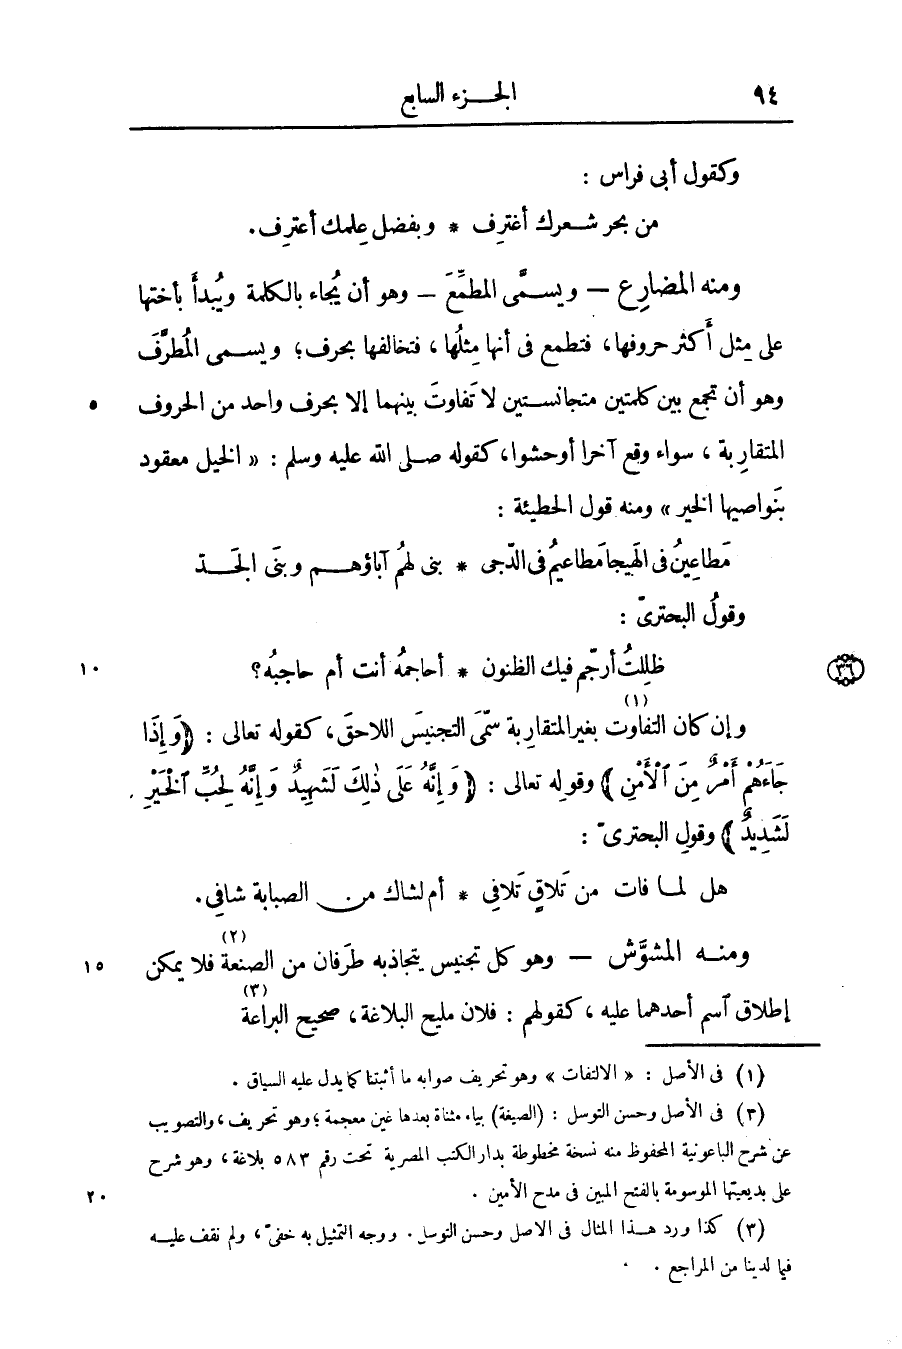 ٩٤
الجـزء السابع
وكقول أبى فراس :
من بحر شـعرك أغترِف * وبفضل عِلمك أعترِف.
ومنه المضارِع — ويسـمَّى المطمِّعَ — وهو أن يُجاء بالكلمة ويُبدأَ بأختها
على مِثل أَكثر حروفها، فتطمع فى أنها مِثلُها، فتخالفها بحرف؛ ويسـمى المُطرَّفَ
وهو أن تجمع بين كلمتين متجانسـتين لا تَفاوتَ بينهما إلا بحرف واحد من الحروف
٥
المتقارِبة، سواء وقع آخرا أوحشوا، كقوله صلى الله عليه وسلم : « الخيل معقود
بنَواصيها الخير » ومنه قول الحطيئة :
مَطاعِينُ فى الهَيجا مَطاعيمُ فى الدّجى * بنى لهمُ آباؤهـم وبنَى الجَـدّ
وقولُ البحترىّ :
ظَلِلتُ أرجّم فيك الظنون * أحاجمُهُ أنت أم حاجبُه؟
١٠
٣٦
وإن كان التفاوت (١) بغير المتقاربة سمّىَ التجنيسَ اللاحقَ، كقوله تعالى : ﴿وَإِذَا
جَاءَهُمْ أَمْرٌ مِنَ ٱلْأَمْنِ﴾ وقولِه تعالى : ﴿وَإِنَّهُ عَلَى ذٰلِكَ لَشَهِيدٌ وَإِنَّهُ لِحُبِّ ٱلْخَيْرِ
لَشَدِيدٌ﴾ وقولِ البحترىّ :
هل لمـا فات من تَلاقٍ تَلافِى * أم لشاك من الصبابة شافِى.
ومنـه المشوَّش — وهو كل تجنيس يتجاذبه طرَفان من الصنعة (٢) فلا يمكن
١٥
إطلاق ٱسم أحدهما عليه، كقولهم : فلان مليح البلاغة، صحيح البراعة (٣)
(١) فى الأصل : « الالتفات » وهو تحريف صوابه ما أثبتنا كما يدل عليه السياق .
(٢) فى الأصل وحسن التوسل : (الصيغة) بياء مثناة بعدها غين معجمة؛ وهو تحريف، والتصويب
عن شرح الباعونية المحفوظ منه نسخة مخطوطة بدار الكتب المصرية تحت رقم ٥٨٣ بلاغة، وهو شرح
على بديعيتها الموسومة بالفتح المبين فى مدح الأمين .
٢٠
(٣) كذا ورد هـذا المثال فى الاصل وحسن التوسل. ووجه التمثيل به خفىّ، ولم نقف عليـه
فيما لدينا من المراجع .